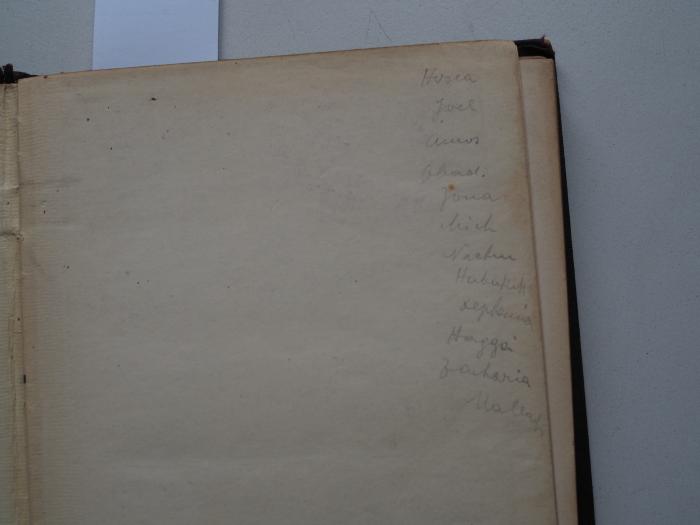 Hosea
Joel
Amos
Obad.
Jona
Mich
Nachum
Habakuk
Zephania
Haggai
Zacharia
Maleachi